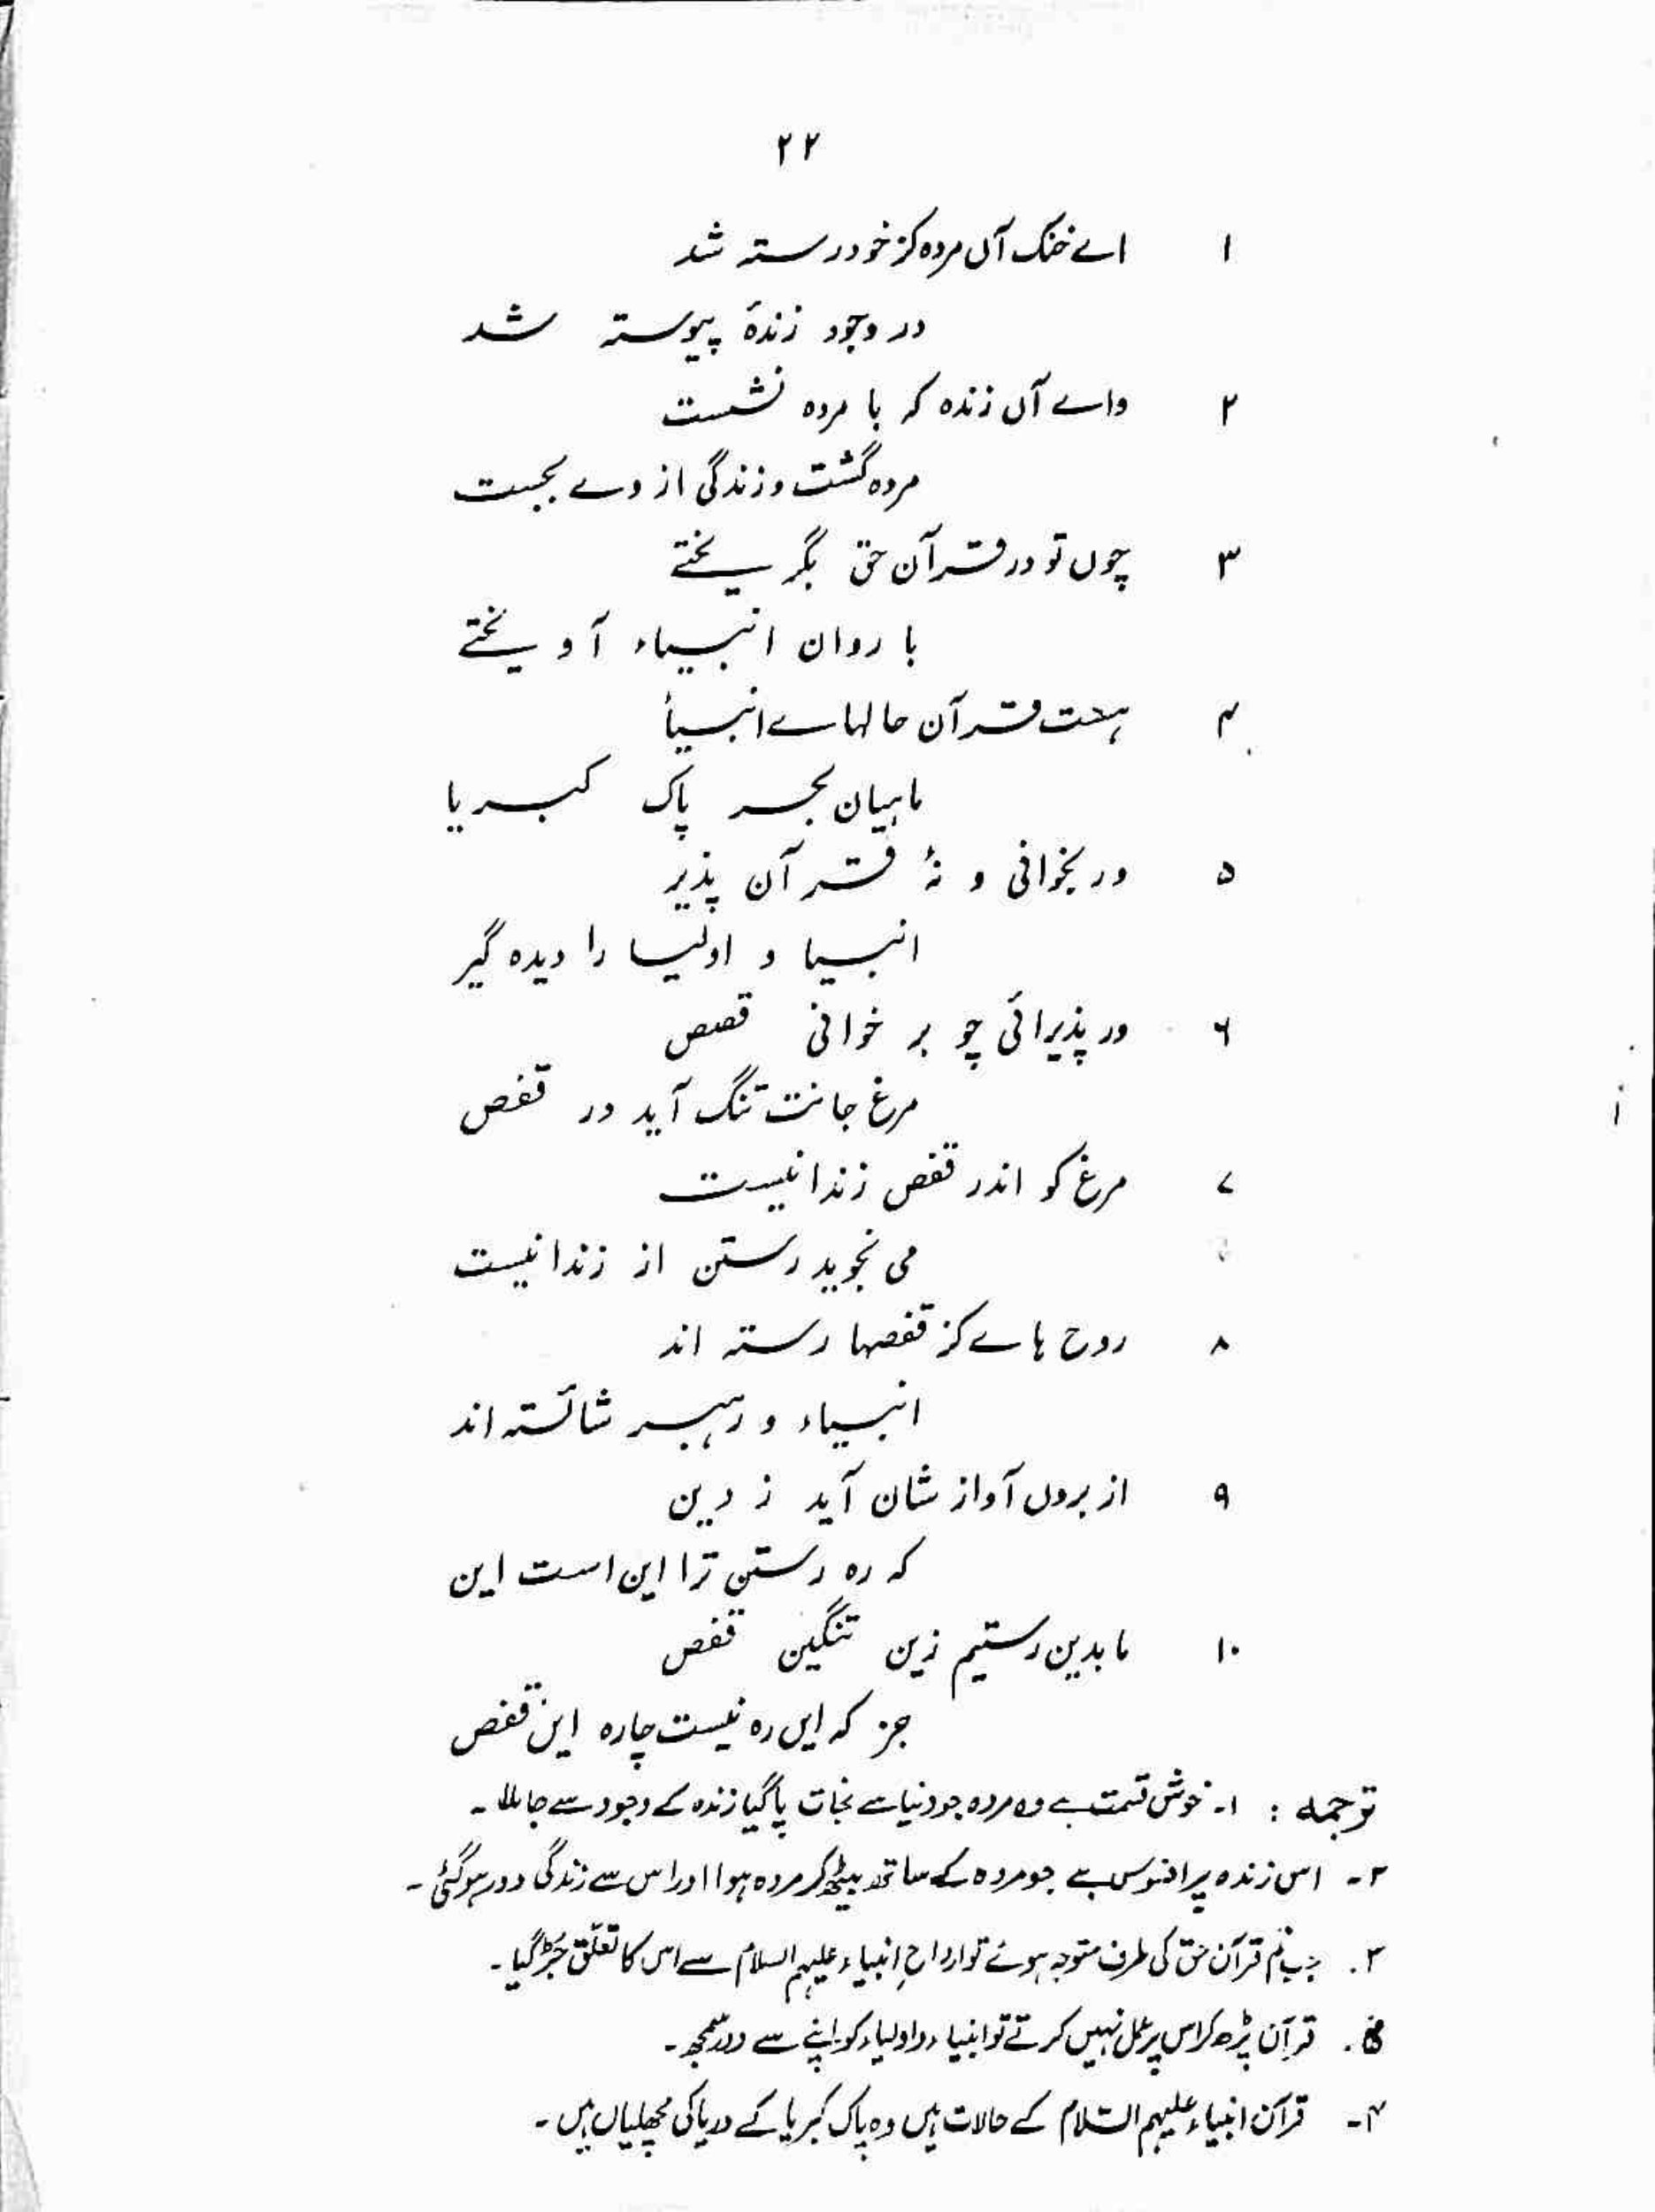 ۲۲
۱ اے خنک آں مردہ کز خود رستہ شد
در وجود زندۂ پیوستہ شد
۲ واے آں زندہ کہ با مردہ نشست
مردہ گشت و زندگی از وے بجست
۳ چوں تو در قرآن حق بگریختے
با روان انبیاء آویختے
۴ ہست قرآن حالہاے انبیأ
ماہیان بحر پاک کبریا
۵ ور بخوانی و نۂ قرآن پذیر
انبیا و اولیا را دیدہ گیر
۶ ور پذیرائی چو بر خوانی قصص
مرغ جانت تنگ آید در قفص
۷ مرغ کو اندر قفص زندانیست
می نجوید رستن از زندانیست
۸ روح ہاے کز قفصہا رستہ اند
انبیاء و رہبر شائستہ اند
۹ از بروں آواز شان آید ز دین
کہ رہ رستن ترا این است این
۱۰ ما بدین رستیم زین تنگین قفص
جز کہ ایں رہ نیست چارہ این قفص
ترجمہ : ۱۔ خوش قسمت ہے وہ مردہ جو دنیا سے نجات پا گیا زندہ کے وجود سے جا ملا ۔
۲۔ اس زندہ پر افسوس ہے جو مردہ کے ساتھ بیٹھ کر مردہ ہوا اور اس سے زندگی دور ہو گئی ۔
۳. جب تم قرآن حق کی طرف متوجہ ہوئے تو ارواحِ انبیاء علیہم السلام سے اس کا تعلّق جُڑ گیا ۔
۵. قرآن پڑھ کر اس پر عمل نہیں کرتے تو انبیاء و اولیاء کو اپنے سے دور سمجھ ۔
۴۔ قرآن انبیاء علیہم السّلام کے حالات ہیں وہ پاک کبریا کے دریا کی مچھلیاں ہیں ۔